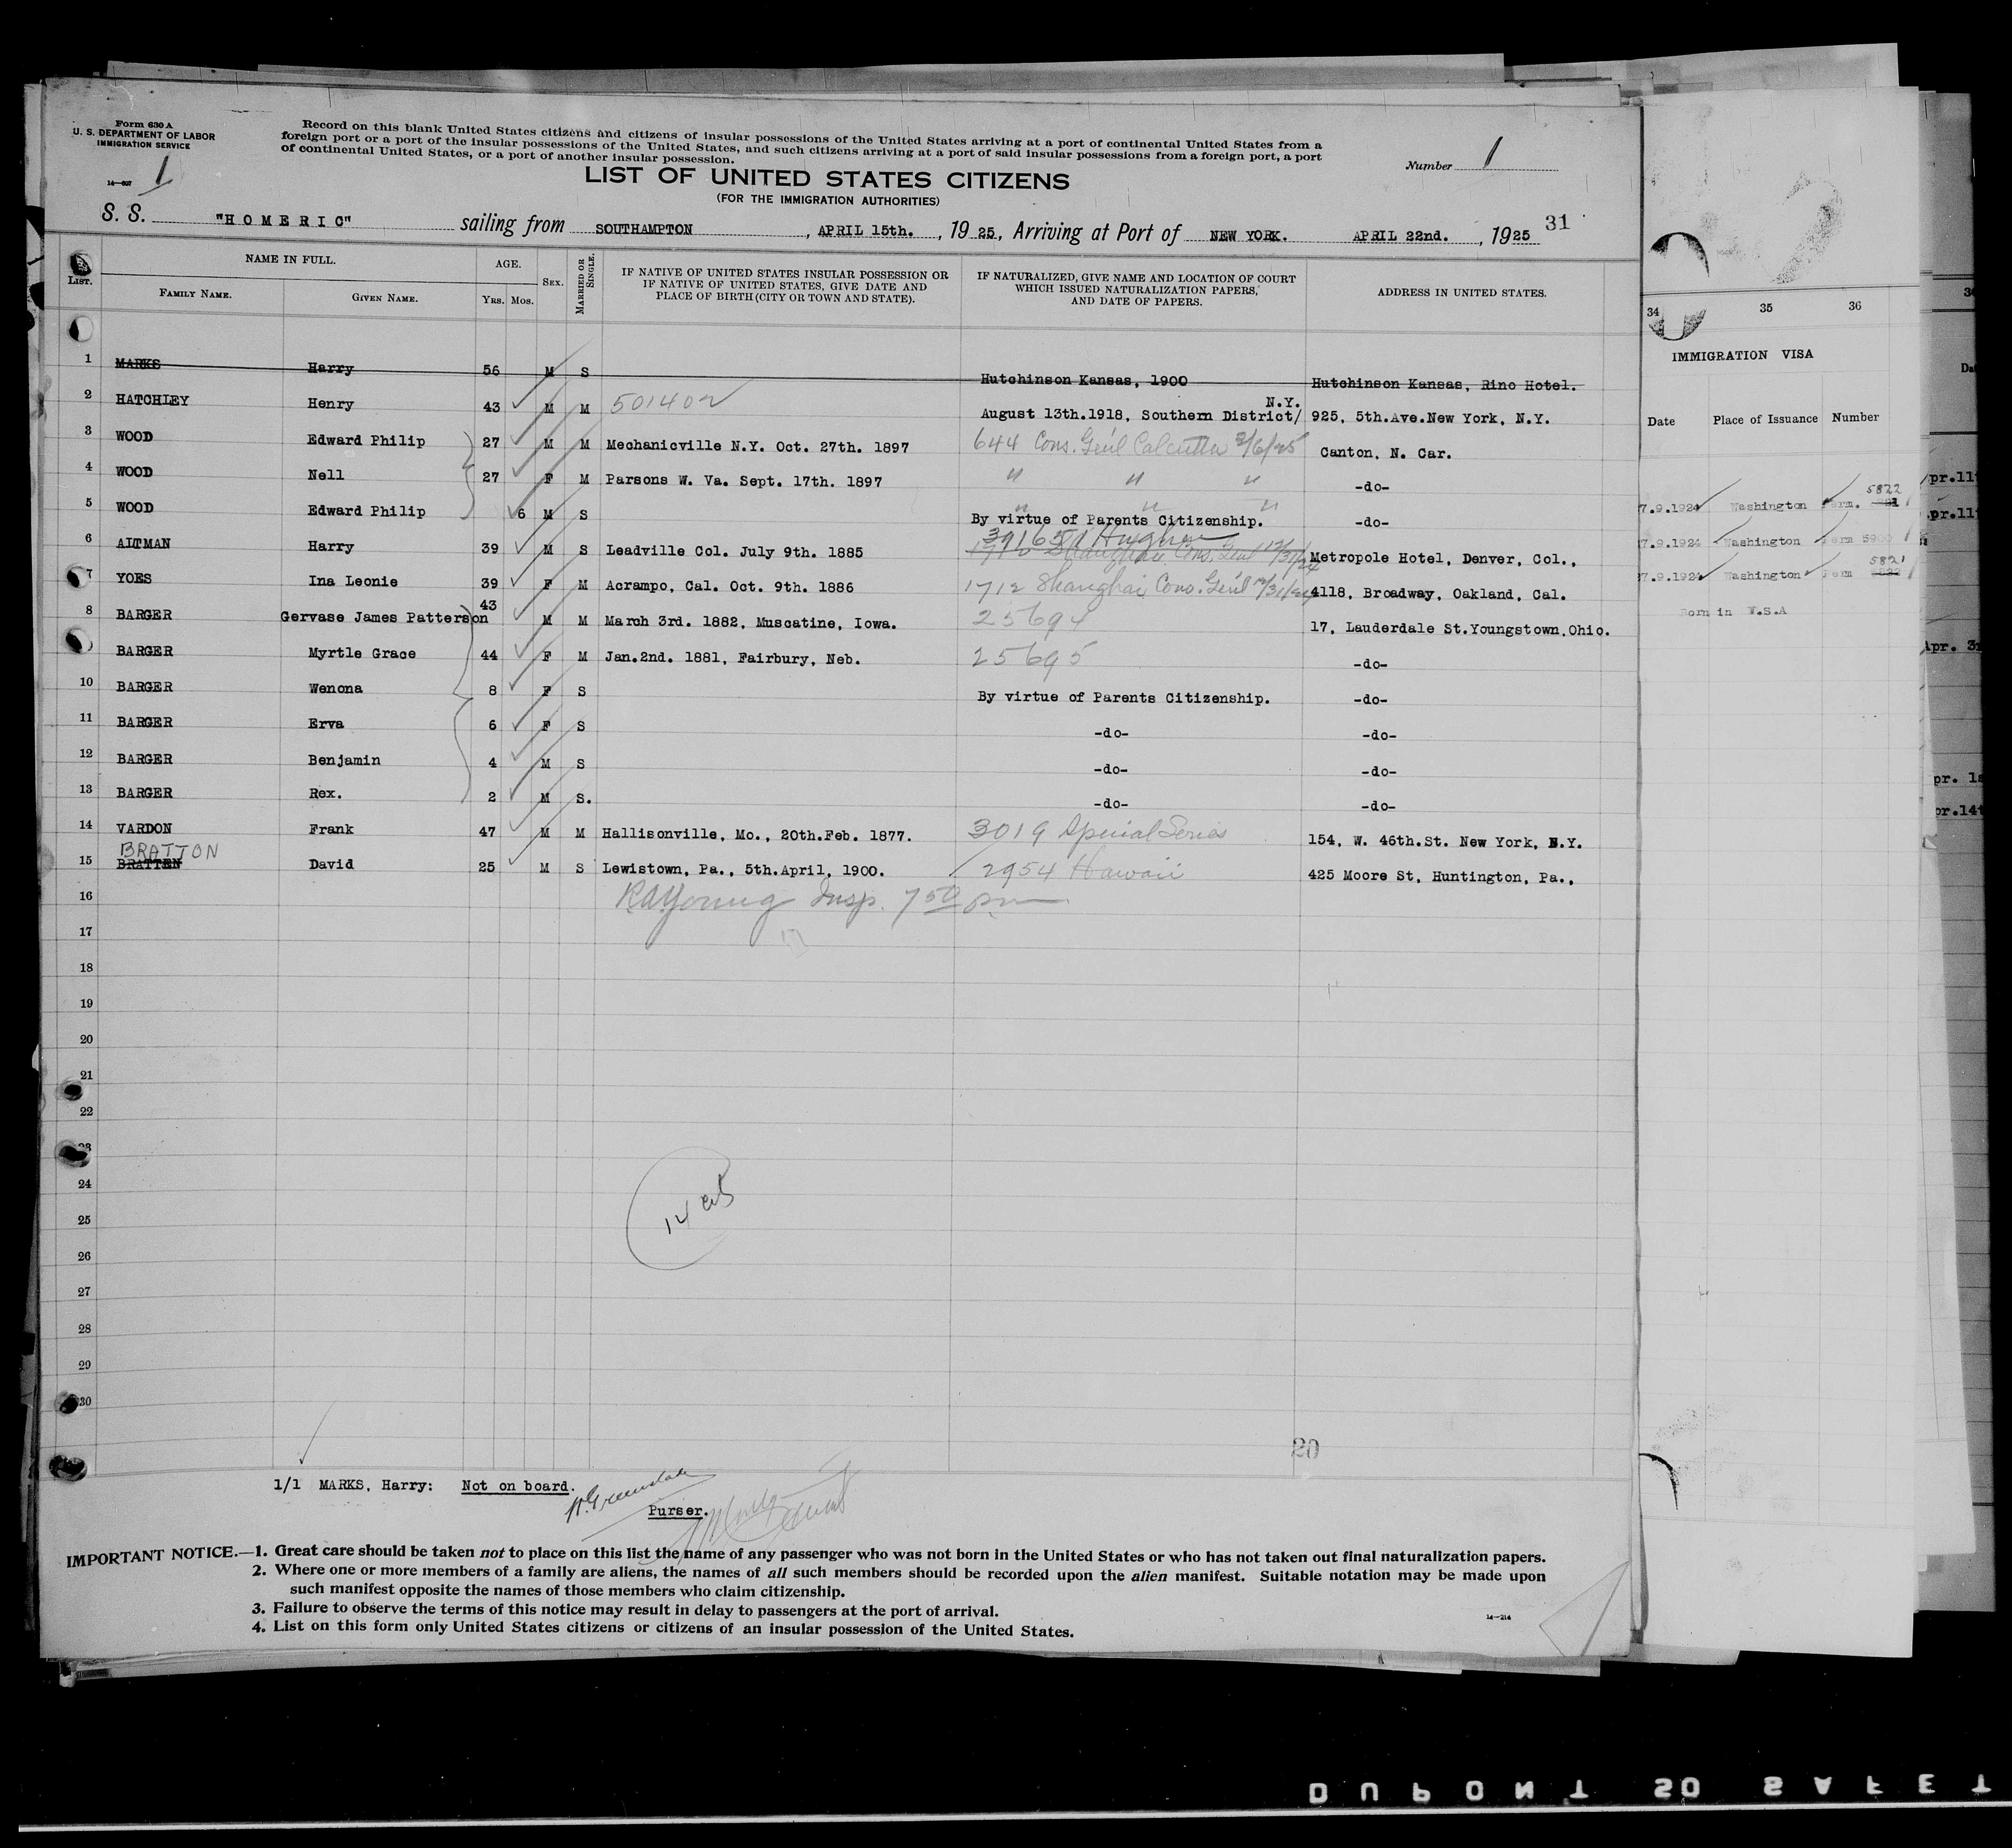 Form 630 A
U. S. DEPARTMENT OF LABOR
IMMIGRATION SERVICE
1
14—607
Record on this blank United States citizens and citizens of insular possessions of the United States arriving at a port of continental United States from a
foreign port or a port of the insular possessions of the United States, and such citizens arriving at a port of said insular possessions from a foreign port, a port
of continental United States, or a port of another insular possession.
Number 1
LIST OF UNITED STATES CITIZENS
(FOR THE IMMIGRATION AUTHORITIES)
S. S. "HOMERIC" sailing from SOUTHAMPTON, APRIL 15th., 1925, Arriving at Port of NEW YORK. APRIL 22nd., 1925 31
LIST. NAME IN FULL. FAMILY NAME. GIVEN NAME. AGE. YRS. MOS. SEX. MARRIED OR SINGLE. IF NATIVE OF UNITED STATES INSULAR POSSESSION OR IF NATIVE OF UNITED STATES, GIVE DATE AND PLACE OF BIRTH (CITY OR TOWN AND STATE). IF NATURALIZED, GIVE NAME AND LOCATION OF COURT WHICH ISSUED NATURALIZATION PAPERS, AND DATE OF PAPERS. ADDRESS IN UNITED STATES.
1 MARKS Harry 56 M S Hutchinson Kansas, 1900 Hutchinson Kansas, Rino Hotel.
2 HATCHLEY Henry 43 M M 501402 August 13th.1918, Southern District/ N.Y. 925, 5th.Ave.New York, N.Y.
3 WOOD Edward Philip 27 M M Mechanicville N.Y. Oct. 27th. 1897 644 Cons. Gen'l Calcutta 2/6/25 Canton, N. Car.
4 WOOD Nell 27 F M Parsons W. Va. Sept. 17th. 1897 " " " -do-
5 WOOD Edward Philip 6 M S " " " By virtue of Parents Citizenship. -do-
6 ALTMAN Harry 39 M S Leadville Col. July 9th. 1885 391651 Hughes 1712 Shanghai Cons. Gen'l 12/31/24 Metropole Hotel, Denver, Col.,
7 YOES Ina Leonie 39 F M Acrampo, Cal. Oct. 9th. 1886 1712 Shanghai Cons. Gen'l 12/31/24 4118, Broadway, Oakland, Cal.
8 BARGER Gervase James Patterson 43 M M March 3rd. 1882, Muscatine, Iowa. 25694 17, Lauderdale St.Youngstown,Ohio.
BARGER Myrtle Grace 44 F M Jan.2nd. 1881, Fairbury, Neb. 25695 -do-
10 BARGER Wenona 8 F S By virtue of Parents Citizenship. -do-
11 BARGER Erva 6 F S -do- -do-
12 BARGER Benjamin 4 M S -do- -do-
13 BARGER Rex. 2 M S. -do- -do-
14 VARDON Frank 47 M M Hallisonville, Mo., 20th.Feb. 1877. 3019 Special Series 154, W. 46th.St. New York, N.Y.
BRATTON
15 BRATTEN David 25 M S Lewistown, Pa., 5th.April, 1900. 2954 Hawaii 425 Moore St, Huntington, Pa.,
16 RAYoung Insp. 7 50 pm
17
18
19
20
21
22
23
24
25
26
27
28
29
30
20
1/1 MARKS, Harry: Not on board.
Purser.
IMPORTANT NOTICE.—1. Great care should be taken not to place on this list the name of any passenger who was not born in the United States or who has not taken out final naturalization papers.
2. Where one or more members of a family are aliens, the names of all such members should be recorded upon the alien manifest. Suitable notation may be made upon
such manifest opposite the names of those members who claim citizenship.
3. Failure to observe the terms of this notice may result in delay to passengers at the port of arrival.
4. List on this form only United States citizens or citizens of an insular possession of the United States.
14—214
34 35 36
IMMIGRATION VISA
Date Place of Issuance Number
7.9.1924 Washington Perm. 5822
7.9.1924 Washington Perm
7.9.1924 Washington Perm 5821
Born in U.S.A
pr.11
pr.11
Apr. 3
pr. 1s
pr.14t
DUPONT SO SAFET